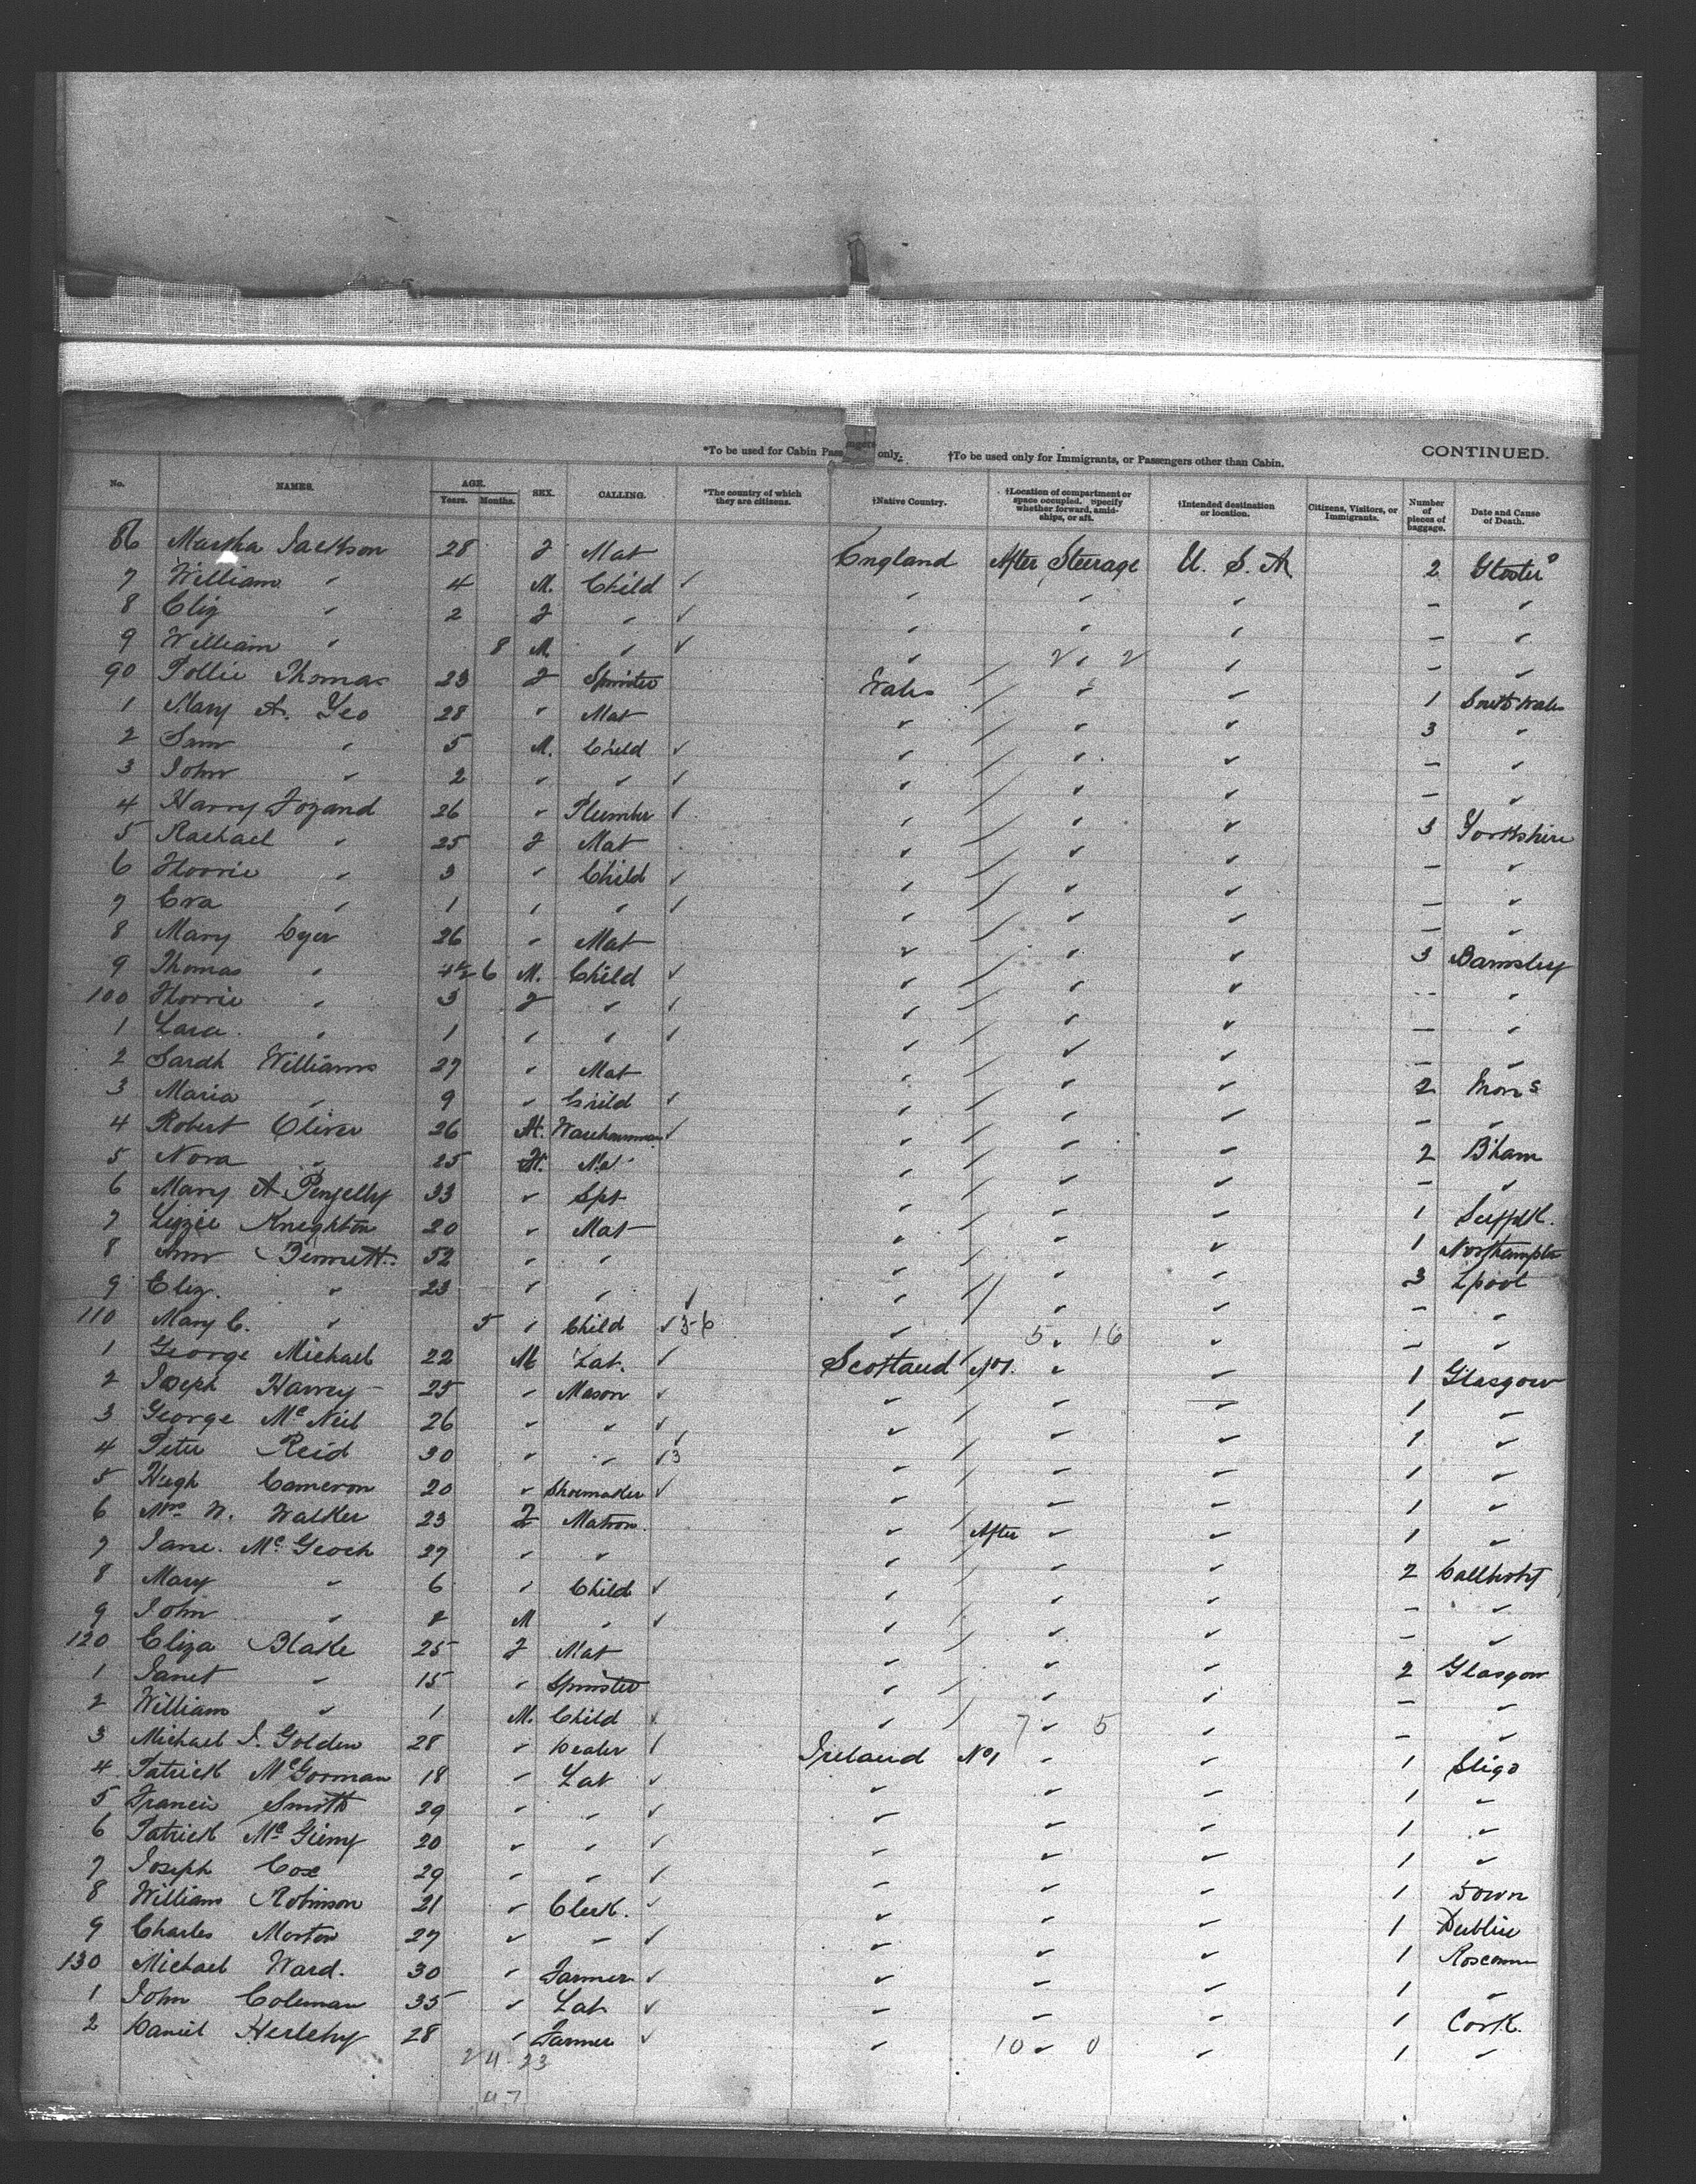 *To be used for Cabin Passengers only. †To be used only for Immigrants, or Passengers other than Cabin. CONTINUED.
No. NAMES. AGE. Years. Months. SEX. CALLING. *The country of which they are citizens. †Native Country. †Location of compartment or space occupied. Specify whether forward, amidships, or aft. †Intended destination or location. Citizens, Visitors, or Immigrants. Number of pieces of baggage. Date and Cause of Death.
86 Martha Jackson 28 F Mat England After Steerage U. S. A 2 Gloster
7 William " 4 M. Child ✓ " " " – "
8 Eliz " 2 F " ✓ " " " – "
9 William " 8 M. " ✓ " 2 " 2 " – "
90 Pollie Thomas 23 F Spinster Wales / " " 1 South Wales
1 Mary A. Yeo 28 " Mat " / " " 3 "
2 Sam " 5 M. Child ✓ " / " " – "
3 John " 2 " " ✓ " / " " – "
4 Harry Fozand 26 " Plumber ✓ " / " " 3 Yorkshire
5 Rachael " 25 F Mat " / " " – "
6 Florrie " 3 " Child ✓ " / " " – "
7 Eva " 1 " " ✓ " / " " – "
8 Mary Cyer 26 " Mat " / " " 3 Barnsley
9 Thomas " 4½ 6 M. Child ✓ " / " " – "
100 Florrie " 3 F " ✓ " / " " – "
1 Lara " 1 " " ✓ " / " " – "
2 Sarah Williams 27 " Mat " / " " 2 Mons
3 Maria " 9 " Child ✓ " / " " – "
4 Robert Oliver 26 M. Warehouseman ✓ " / " " 2 B'ham
5 Nora " 25 Mat " / " " – "
6 Mary A. Pengelly 33 " Spt " / " " 1 Suffolk.
7 Lizzie Knighton 20 " Mat " / " " 1 Northampton
8 Ann Bennett 52 " " " / " " 3 Lpool
9 Eliz. " 23 " " " // " " – "
110 Mary C. " 5 " Child ✓ 36 " 5 " 16 " – "
1 George Michael 22 M Lab. ✓ Scotland No 1. " " 1 Glasgow
2 Joseph Harvey 25 " Mason ✓ " " " 1 "
3 George McNeil 26 " " ✓ " / " " 1 "
4 Peter Reid 30 " " ✓ 13 " / " " 1 "
5 Hugh Cameron 20 " Shoemaker ✓ " / " " 1 "
6 Mrs W. Walker 23 F Matron. " After " " 1 "
7 Jane. McGeoch 27 " " " / " " 2
8 Mary " 6 " Child ✓ " / " " – "
9 John " M " ✓ " / " " – "
120 Eliza Blake 25 F Mat " / " " 2 Glasgow
1 Janet " 15 " Spinster " / " " – "
2 William " 1 M. Child ✓ " / 7 " 5 " – "
3 Michael J. Golden 28 " Dealer ✓ Ireland No 1 " " 1 Sligo
4 Patrick McGorman 18 " Lab ✓ " " " 1 "
5 Francis Smith 29 " " ✓ " " " 1 "
6 Patrick 20 " " ✓ " " " 1 "
7 Joseph Cox 29 " " ✓ " " " 1 Down
8 William Robinson 21 " Clerk. ✓ " " " 1 Dublin
9 Charles Morton 27 " – ✓ " " " 1 Roscomn
130 Michael Ward. 30 " Farmer ✓ " " " 1 "
1 John Coleman 35 " Lab ✓ " " " 1 Cork.
2 Daniel Herlehy 28 " Farmer ✓ " 10 " 0 " 1 "
24 23
47